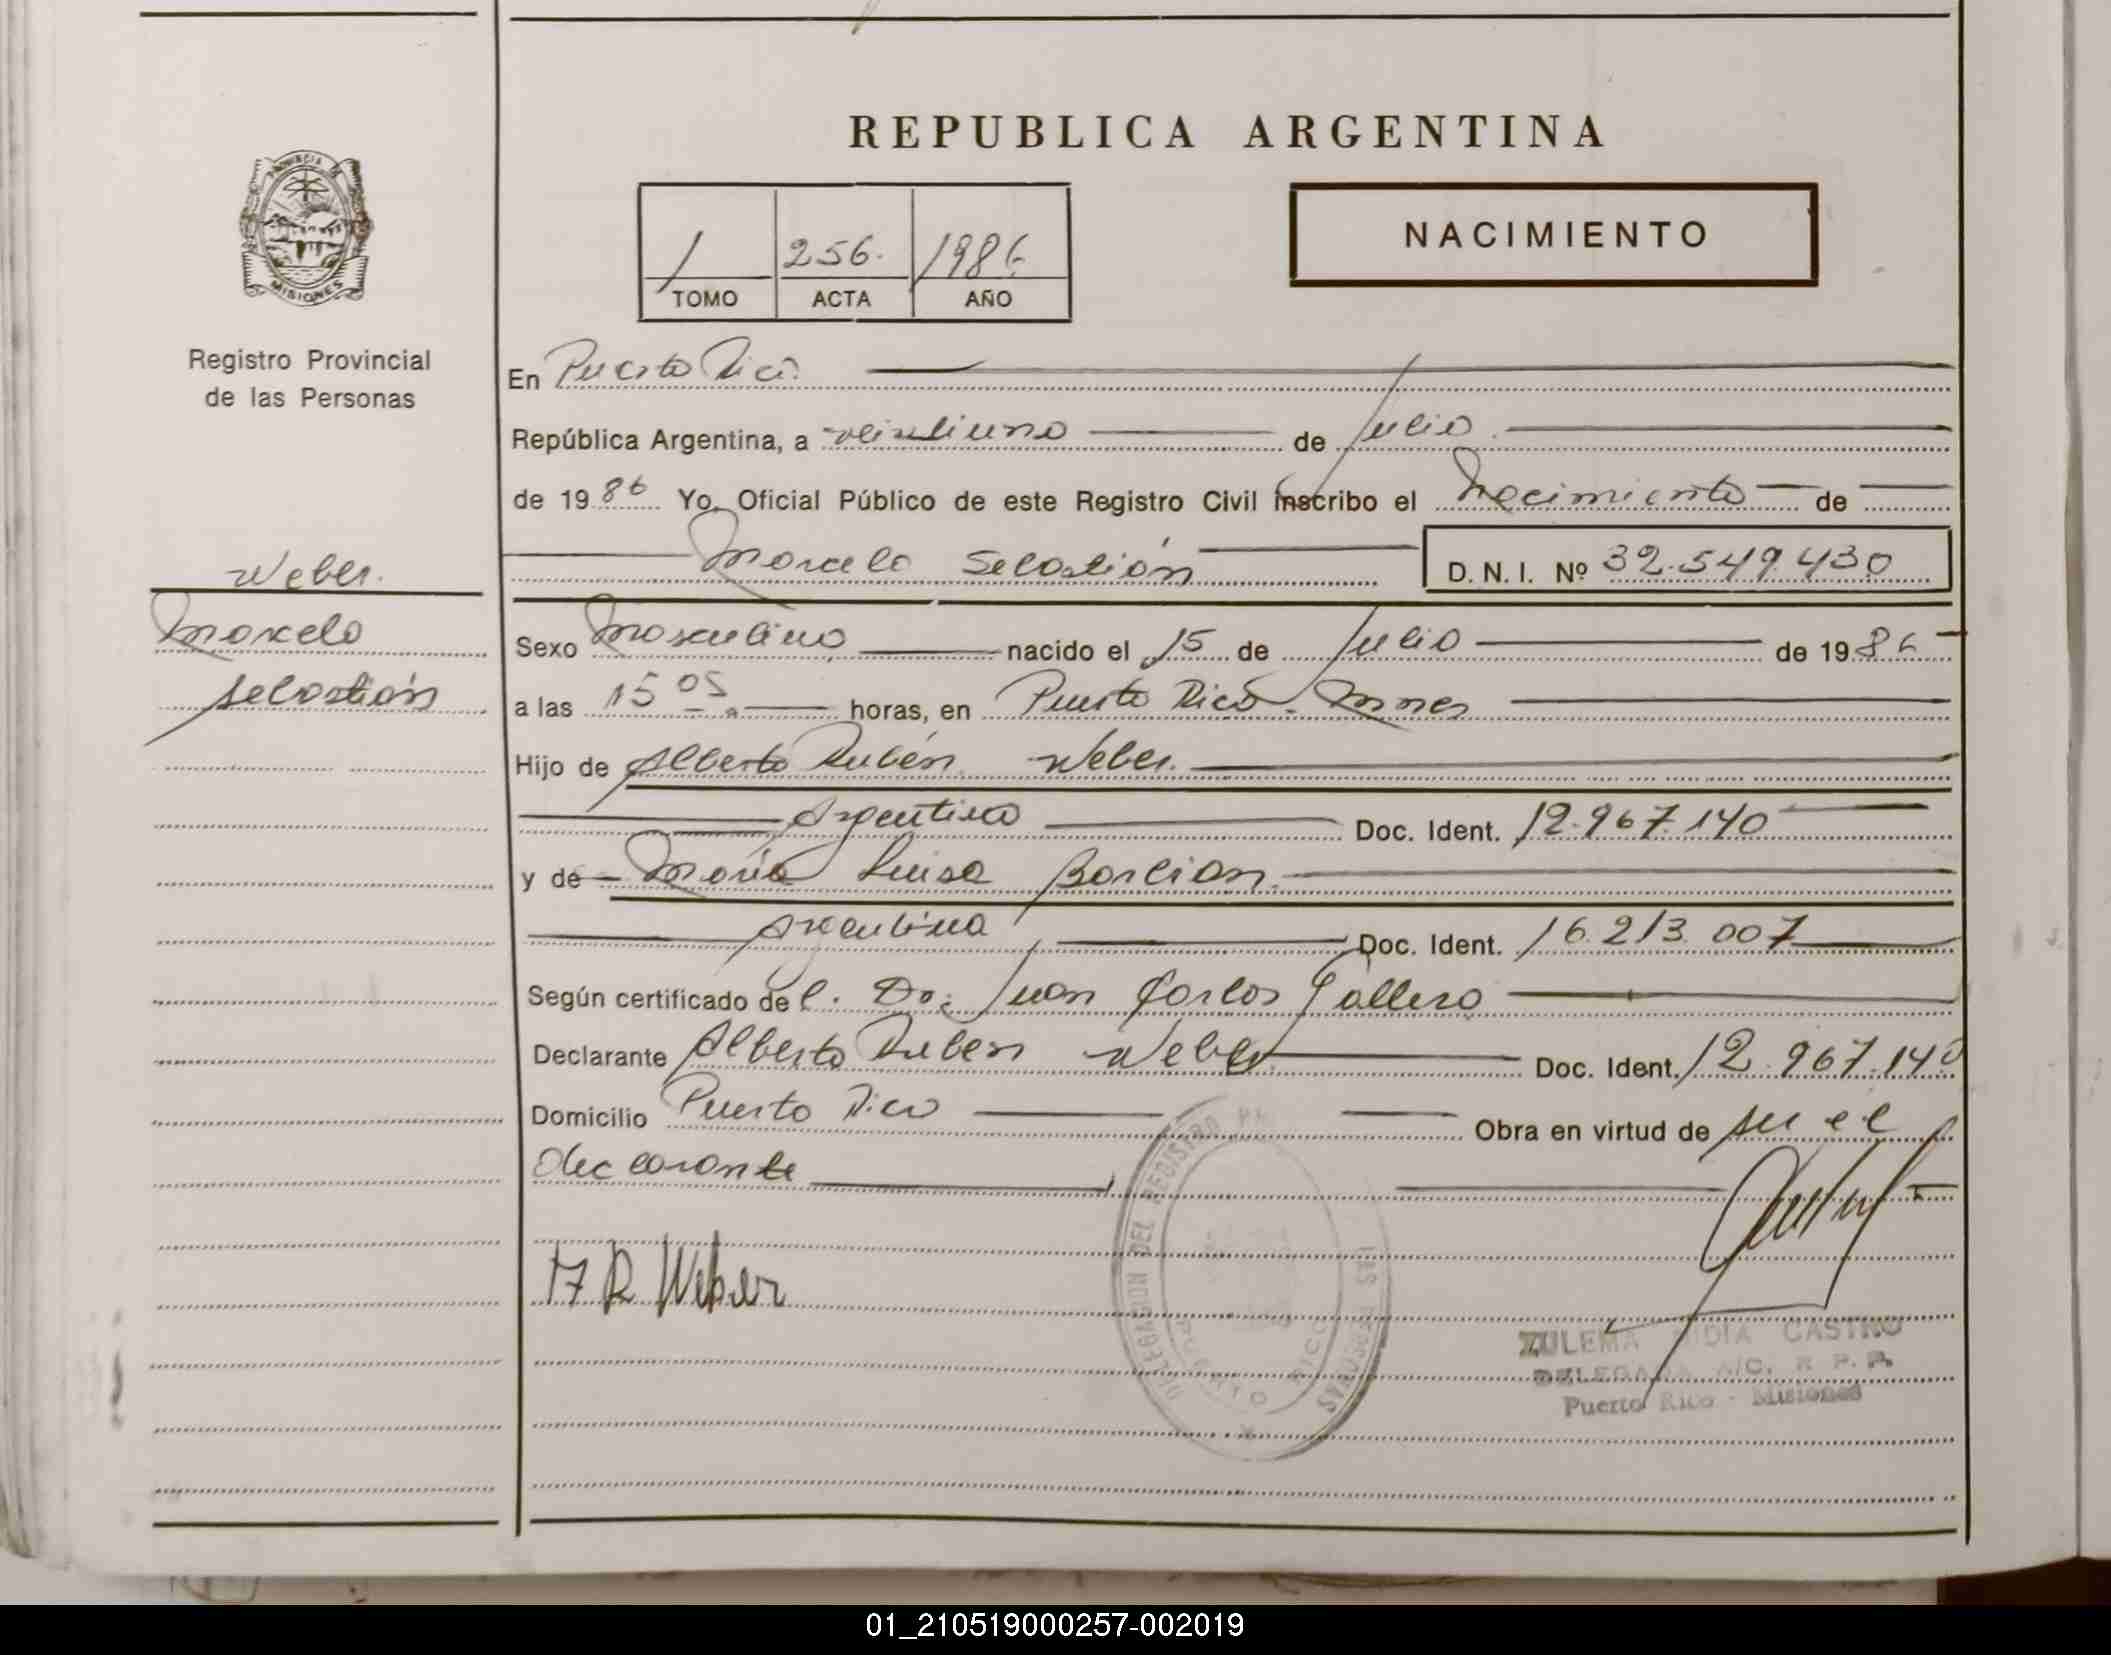 REPUBLICA ARGENTINA
PROVINCIA DE
MISIONES
Registro Provincial
de las Personas
1 256. 1986
TOMO ACTA AÑO
NACIMIENTO
En Puerto Rico.
República Argentina, a veintiuno de Julio.
de 1986 Yo, Oficial Público de este Registro Civil inscribo el Nacimiento de
Marcelo Sebastián D. N. I. Nº 32.549.430
Weber.
Marcelo
Sebastián
Sexo Masculino nacido el 15 de Julio de 1986
a las 15 05 horas, en Puerto Rico. Mnes
Hijo de Alberto Rubén Weber.
Argentino Doc. Ident. 12.967.140
y de María Luisa
Argentina Doc. Ident. 16.213.007
Según certificado del. Dr. Juan Carlos Gallero
Declarante Alberto Ruben Weber Doc. Ident. 12.967.140
Domicilio Puerto Rico Obra en virtud de su el
declarante
R Weber
DELEGACION DEL REGISTRO LAS PERSONAS
PUERTO RICO
ZULEMA NIDIA CASTRO
DELEGADA A/C. R. P. P.
Puerto Rico - Misiones
01_210519000257-002019